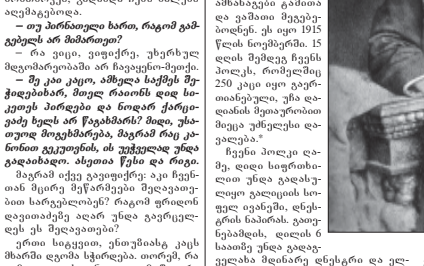 აღემატებოდა.
– თუ პირნათელი ხართ, რატომ გამ-
გებელს არ მიმართეთ?
– რა ვიცი, ვიფიქრე, უხერხულ
მდგომარეობაში არ ჩავაყენო-მეთქი.
– შე კაი კაცო, ამხელა საქმეს შე-
ჭიდებიხარ, მთელ რაიონს დიდ სი-
კეთეს პირდები და ნოდარ ქარცი-
ვაძე ხელს არ წაგახმარს? მიდი, უსა-
თუოდ მოგეხმარება, მაგრამ რაც კა-
ნონით გეკუთვნის, ის უეჭველად უნდა
გადაიხადო. ასეთია წესი და რიგი.
მაგრამ იქვე გავიფიქრე: აკი ჩვენ-
თან მცირე მეწარმეები შეღავათე-
ბით სარგებლობენ? რატომ ფრიდონ
დავითაძეზე აღარ უნდა გავრცელ-
დეს ეს შეღავათები?
ერთი სიტყვით, ენთუზიასტ კაცს
მხარში დგომა სჭირდება. თორემ, რა
ამხანაგები ტაშითა
და ვაშათი შეგებე-
ბოდნენ. ეს იყო 1915
წლის ნოემბერში. 15
დღის შემდეგ ჩვენს
პოლკს, რომელშიც
250 კაცი იყო გაერ-
თიანებული, უჩა და-
დიანის მეთაურობით
მიეცა უძნელესი და-
ვალება.*
ჩვენი პოლკი ღა-
მე, დიდი სიფრთხი-
ლით უნდა გადასუ-
ლიყო გალიციის სო-
ფელ ივანეში, დნეს-
ტრის ნაპირას. გათე-
ნებამდის, დილის 6
საათზე უნდა გადაგ-
ველახა მდინარე დნესტრი და ელ-